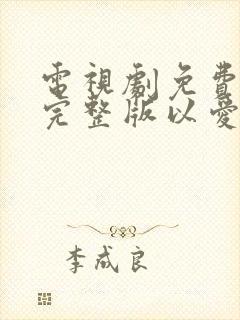 電視劇免費
完整版以愛
李成良